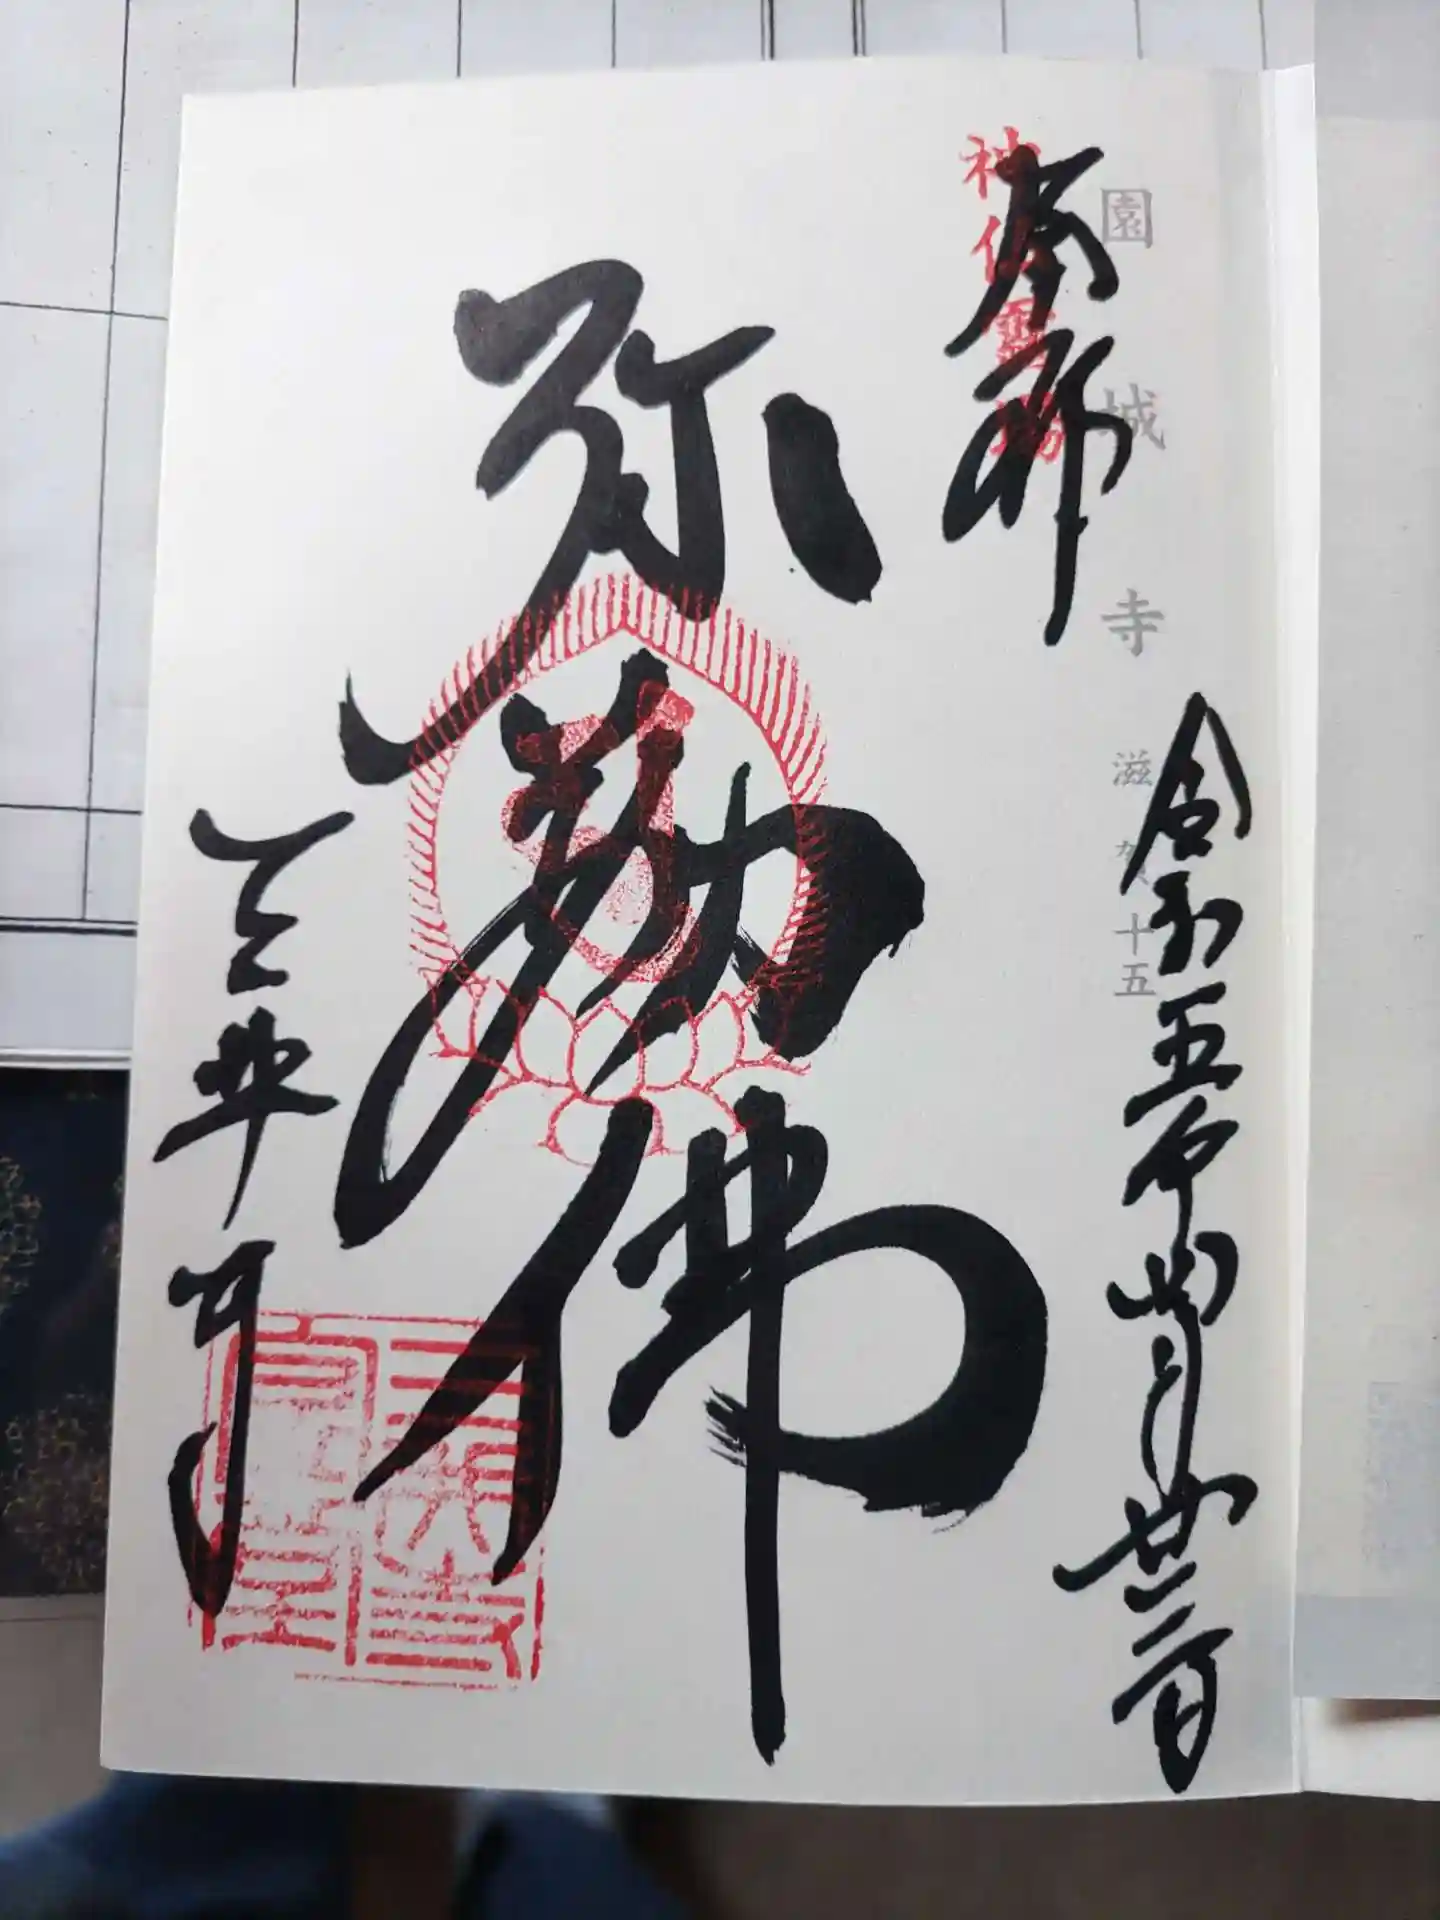 園城寺 滋賀十五
神仏霊場
奉拝
令和五年四月廿二日
弥勒佛
三井寺